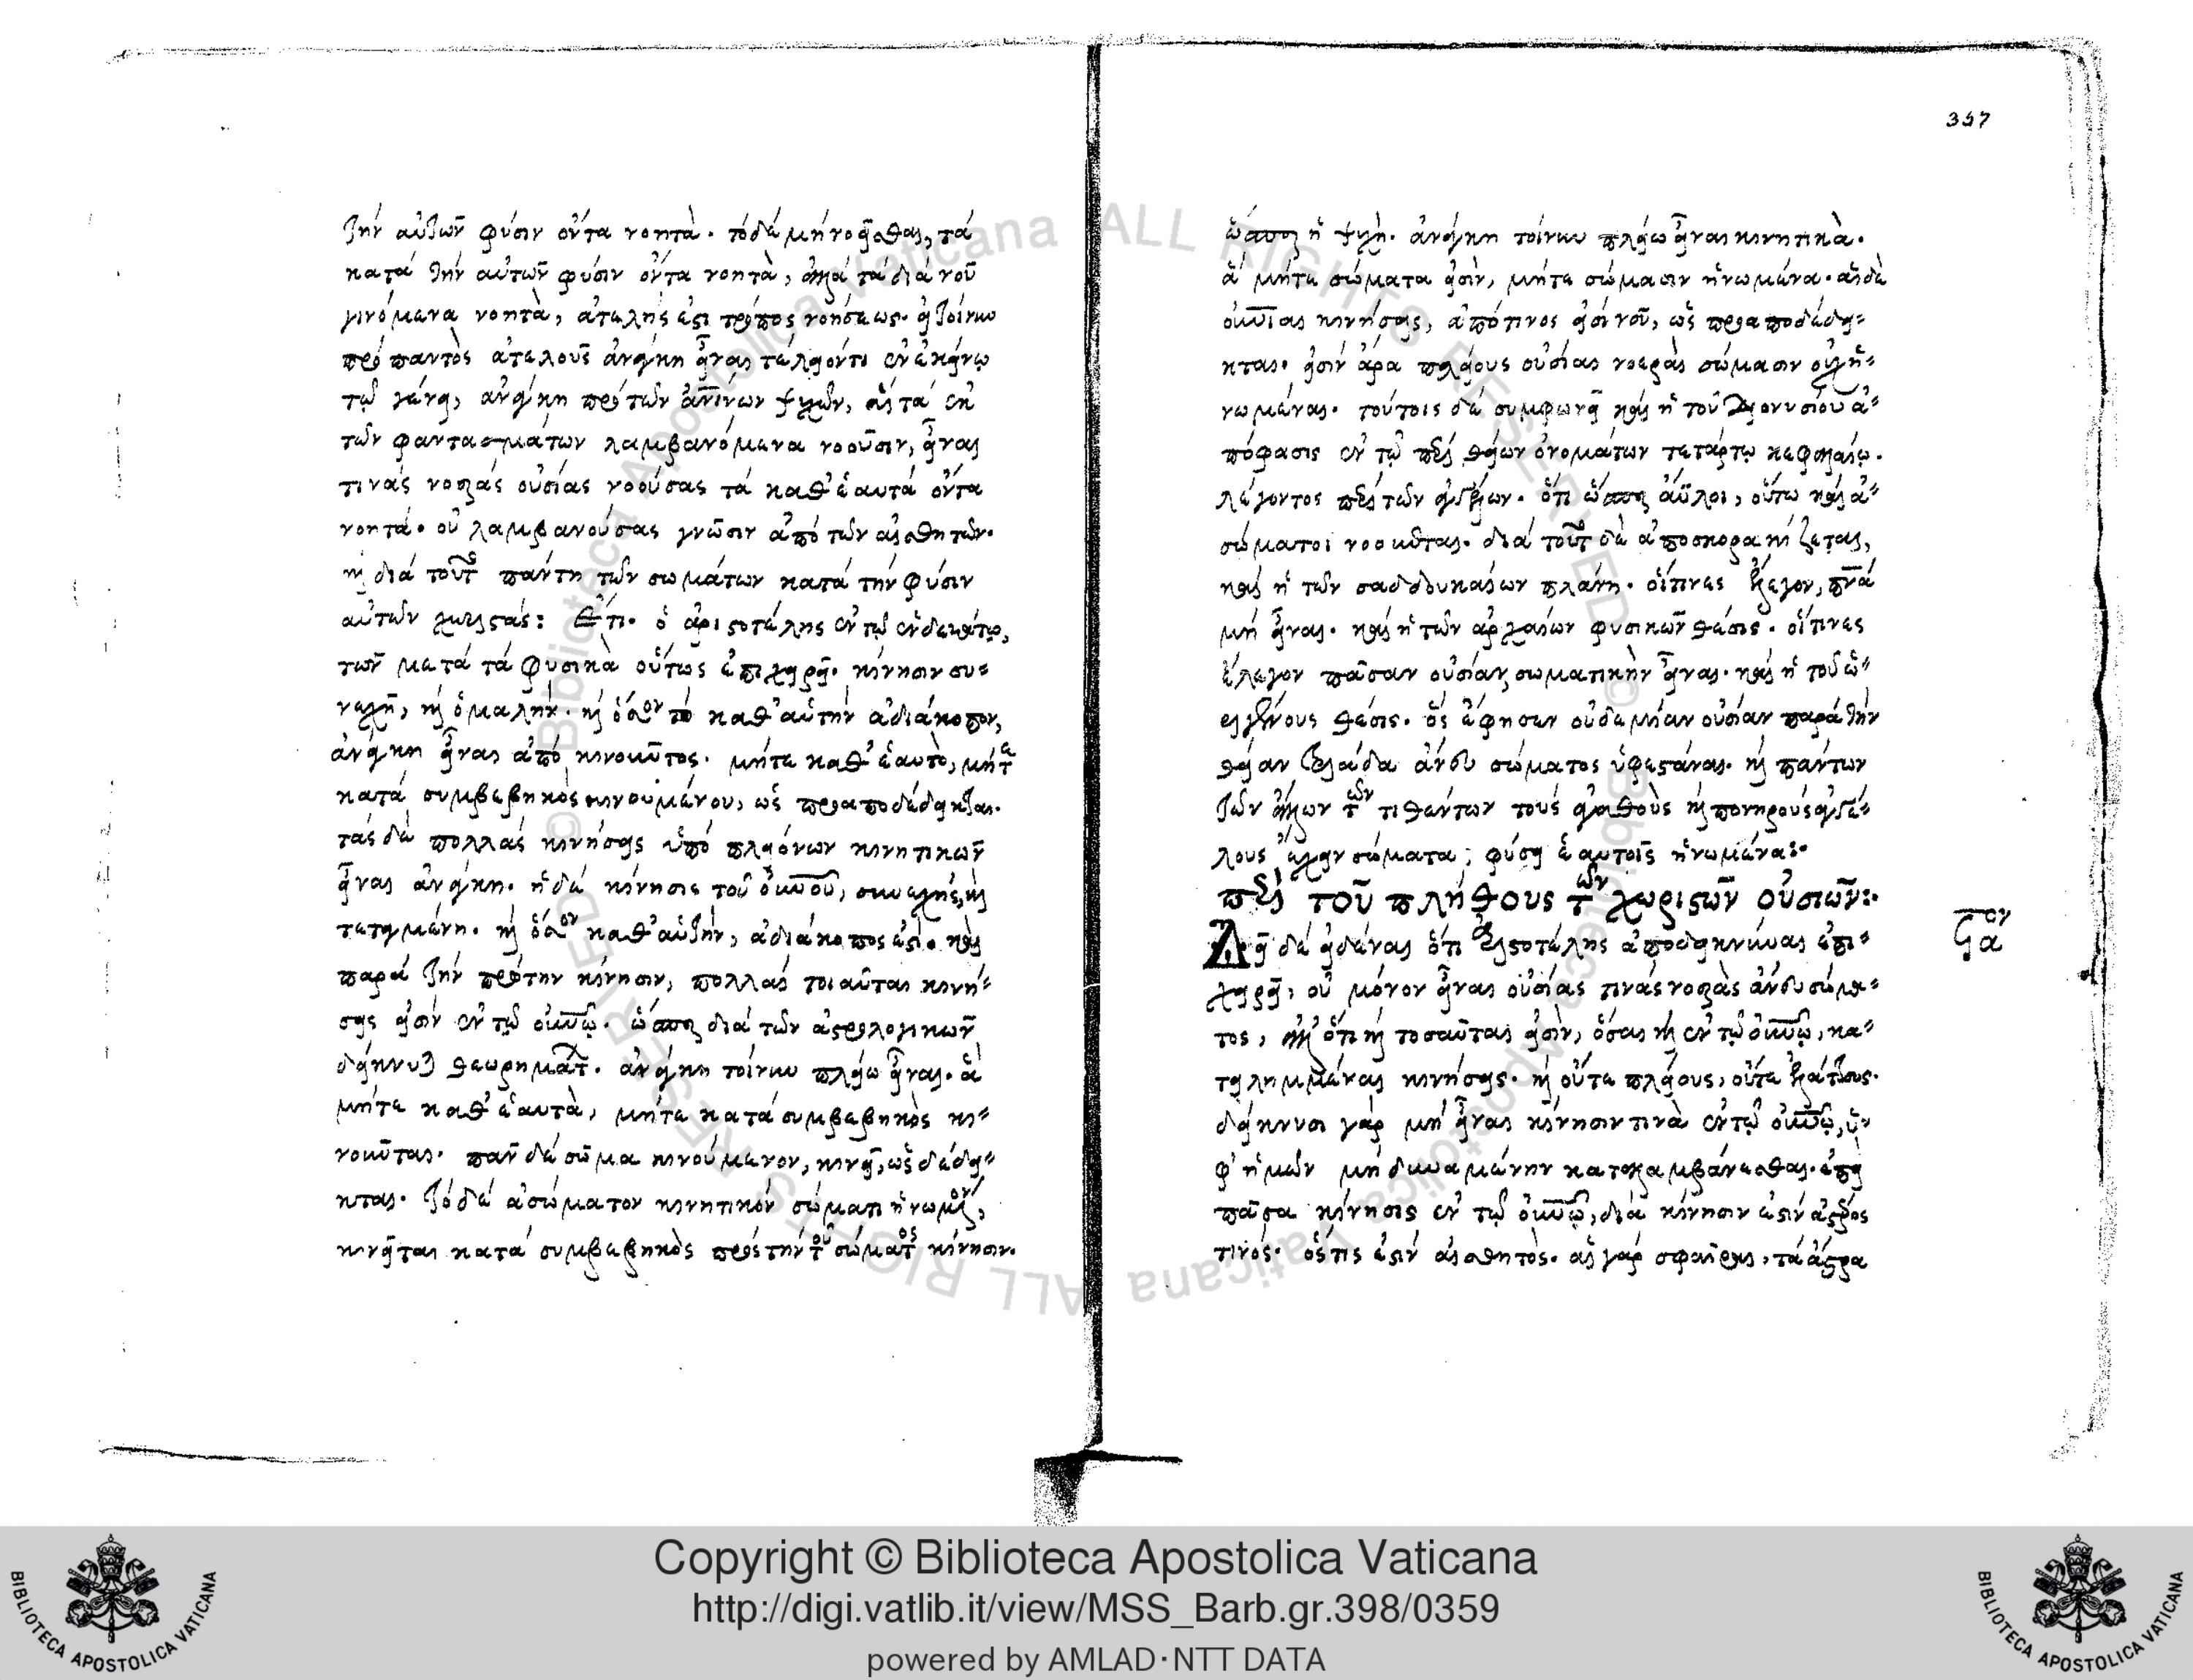 357
τὴν αὐτῶν φύσιν ὄντα νοητὰ. τὸ δὲ μὴ νοεῖσθαι, τὰ
κατὰ τὴν αὐτῶν φύσιν ὄντα νοητὰ, ἀλλὰ τὰ διὰ νοῦ
γινόμενα νοητὰ, ἀτελής ἐστι τρόπος νοήσεως. εἰ τοίνυν
πρὸ παντὸς ἀτελοῦς ἀνάγκη εἶναι τέλειόν τι ἐν ἐκείνῳ
τῷ γένει, ἀνάγκη πρὸ τῶν ἀνίνων ψυχῶν, αἳ τὰ ἐκ
τῶν φαντασμάτων λαμβανόμενα νοοῦσιν, εἶναι
τινὰς νοερὰς οὐσίας νοούσας τὰ καθ' ἑαυτὰ ὄντα
νοητά. οὐ λαμβανούσας γνῶσιν ἀπὸ τῶν αἰσθητῶν.
καὶ διὰ τοῦτο πάντη τῶν σωμάτων κατὰ τὴν φύσιν
αὐτῶν χωριστάς: Ἔτι. ὁ ἀριστοτέλης ἐν τῷ ἑνδεκάτῳ,
τῶν μετὰ τὰ φυσικὰ οὕτως ἐπιχειρεῖ. κίνησιν συ=
νεχῆ, καὶ ὁμαλὴν. καὶ ὅσον τὸ καθ' αὑτὴν ἀδιάκοπον,
ἀνάγκη εἶναι ἀπὸ κινοῦντος. μήτε καθ' ἑαυτὸ, μήτε
κατὰ συμβεβηκὸς κινουμένου, ὡς προαποδέδεικται.
τὰς δὲ πολλὰς κινήσεις ὑπὸ πλειόνων κινητικῶν
εἶναι ἀνάγκη. ἡ δὲ κίνησις τοῦ οὐνοῦ, συνεχής, καὶ
τεταγμένη. καὶ ὅσον καθ' αὑτὴν, ἀδιάκοπος ἐστί. καὶ
παρὰ τὴν πρώτην κίνησιν, πολλαὶ τοιαῦται κινή=
σεις εἰσὶν ἐν τῷ οὐνῷ. ὥσπερ διὰ τῶν ἀστρολογικῶν
δείκνυται θεωρημάτων. ἀνάγκη τοίνυν πλείω εἶναι. ἃ
μήτε καθ' ἑαυτὰ, μήτε κατὰ συμβεβηκὸς κι=
νοῦνται. πᾶν δὲ σῶμα κινούμενον, κινεῖ, ὡς δέδει=
κται. τὸ δὲ ἀσώματον κινητικὸν σώματι ἡνωμένον,
κινεῖται κατὰ συμβεβηκὸς πρὸς τὴν τοῦ σώματος κίνησιν.
ὥσπερ ἡ ψυχὴ. ἀνάγκη τοίνυν πλείω εἶναι κινητικὰ.
ἃ μήτε σώματα εἰσὶν, μήτε σώμασιν ἡνωμένα. αἱ δὲ
οὐνίαι κινήσεις, ἀπό τινος εἰσὶ νοῦ, ὡς προαποδέδει=
κται. εἰσὶν ἄρα πλείους οὐσίαι νοεραὶ σώμασιν οὐχ ἡ=
νωμέναι. τούτοις δὲ συμφωνεῖ καὶ ἡ τοῦ Διονυσίου ἀ=
πόφασις ἐν τῷ περὶ θείων ὀνομάτων τετάρτῳ κεφαλαίῳ.
λέγοντος περὶ τῶν ἀγγέλων. ὅτι ὥσπερ ἄϋλοι, οὕτω καὶ ἀ=
σώματοι νοοῦνται. διὰ τοῦτο δὲ ἀποσκορακίζεται,
καὶ ἡ τῶν σαδδουκαίων πλάνη. οἵτινες ἔλεγον, πνα
μὴ εἶναι. καὶ ἡ τῶν ἀρχαίων φυσικῶν θέσις. οἵτινες
ἔλεγον πᾶσαν οὐσίαν σωματικὴν εἶναι. καὶ ἡ τοῦ ὠ=
ριγένους θέσις. ὃς ἔφησεν οὐδεμίαν οὐσίαν παρὰ τὴν
θείαν τριάδα ἄνευ σώματος ὑφεστάναι. καὶ πάντων
τῶν ἄλλων τῶν τιθέντων τοὺς ἀγαθοὺς καὶ πονηροὺς ἀγγέ=
λους ἔχειν σώματα, φύσει ἑαυτοῖς ἡνωμένα:
περὶ τοῦ πλήθους τῶν χωριστῶν οὐσιῶν:.
Δεῖ δὲ εἰδέναι ὅτι ἀριστοτέλης ἀποδεικνύναι ἐπι=
χειρεῖ, οὐ μόνον εἶναι οὐσίας τινὰς νοερὰς ἄνευ σώμα=
τος, ἀλλ' ὅτι καὶ τοσαῦται εἰσὶν, ὅσαι καὶ ἐν τῷ οὐνῷ, κα=
τειλημμέναι κινήσεις. καὶ οὔτε πλείους, οὔτε ἐλάττους.
δείκνυσι γὰρ μὴ εἶναι κίνησιν τινὰ ἐν τῷ οὐνῷ, ὑ=
φ' ἡμῶν μὴ δυναμένην καταλαμβάνεσθαι. ἐπεὶ
πᾶσα κίνησις ἐν τῷ οὐνῷ, διὰ κίνησιν ἐστὶν ἀστέρος
τινός. ὅστις ἐστὶν αἰσθητὸς. αἱ γὰρ σφαῖραι, τὰ ἄστρα
Copyright © Biblioteca Apostolica Vaticana
http://digi.vatlib.it/view/MSS_Barb.gr.398/0359
powered by AMLAD·NTT DATA
BIBLIOTECA APOSTOLICA VATICANA
BIBLIOTECA APOSTOLICA VATICANA